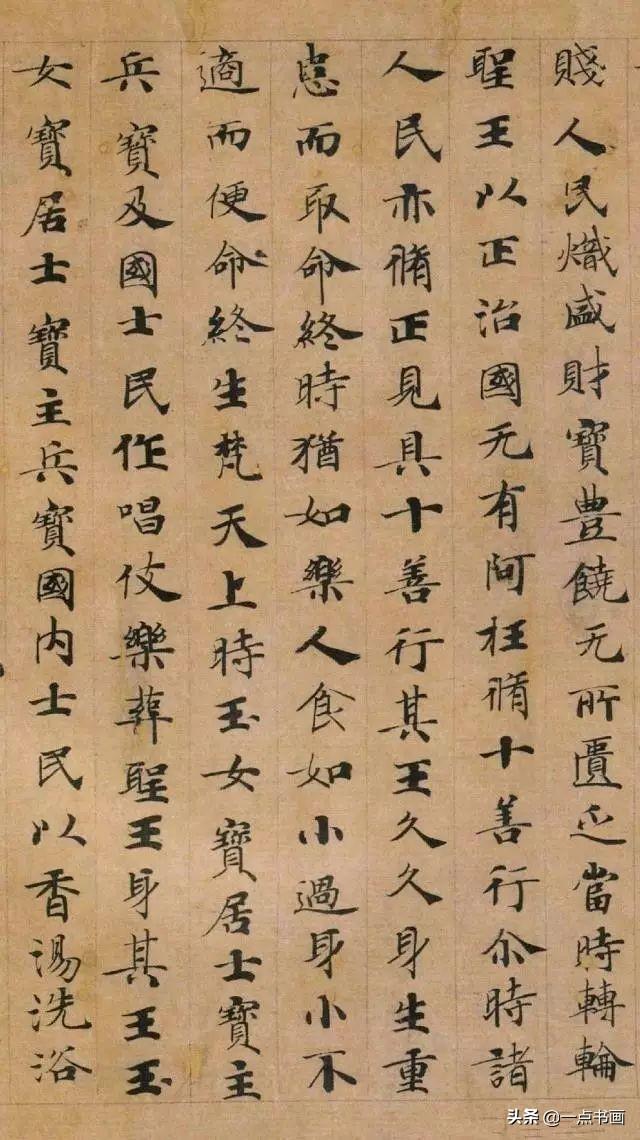 賤人民熾盛財寶豊饒无所匱乏當時轉輪
聖王以正治國无有阿枉脩十善行尒時諸
人民亦脩正見具十善行其王久久身生重
患而取命終時猶如樂人食如小過身小不
適而便命終生梵天上時玉女寶居士寶主
兵寶及國士民作唱伎樂葬聖王身其王玉
女寶居士寶主兵寶國内士民以香湯洗浴
头条 @一点书画